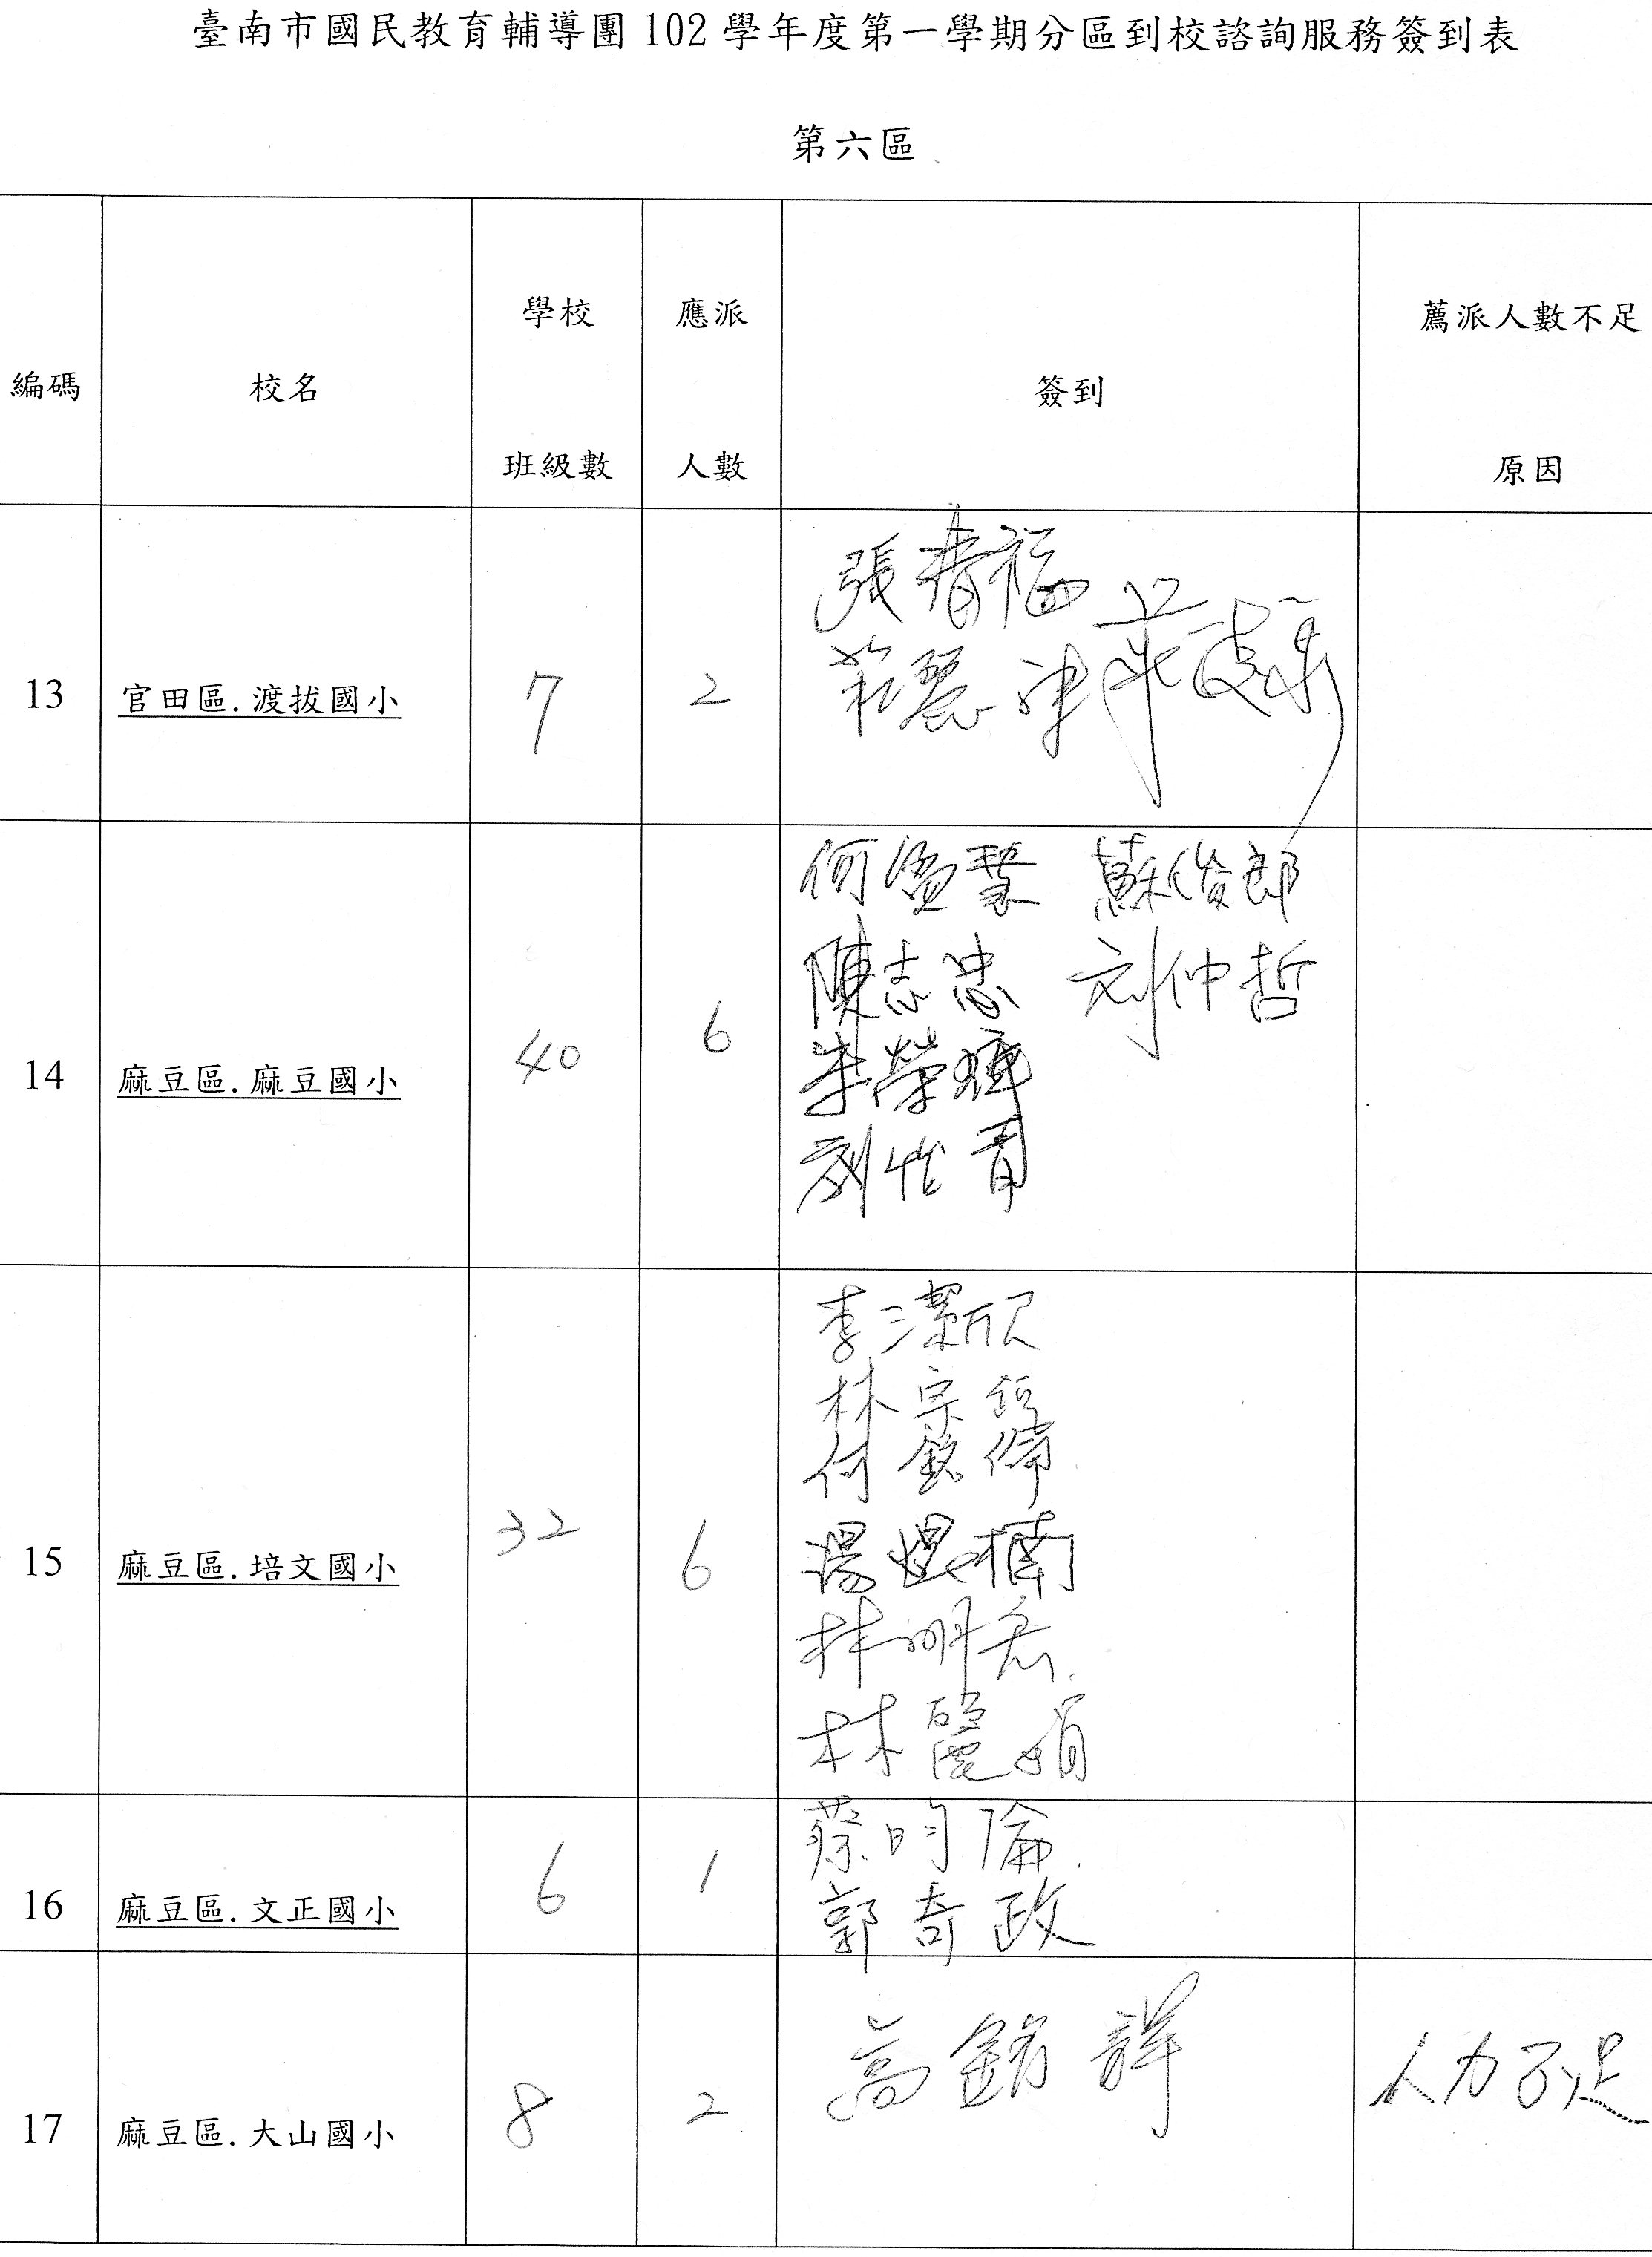 臺南市國民教育輔導團 102 學年度第一學期分區到校諮詢服務簽到表
第六區
編碼 校名 學校班級數 應派人數 簽到 薦派人數不足原因
13 官田區.渡拔國小 7 2
張春福
14 麻豆區.麻豆國小 40 6
何 蘇俊郎
陳志忠 刘仲哲
李榮輝
劉怡
15 麻豆區.培文國小 32 6
李潔欣
林宗
何
湯 楠
林明
林麗娟
16 麻豆區.文正國小 6 1
蔡昀倫
郭奇政
17 麻豆區.大山國小 8 2
高銘祥 人力不足